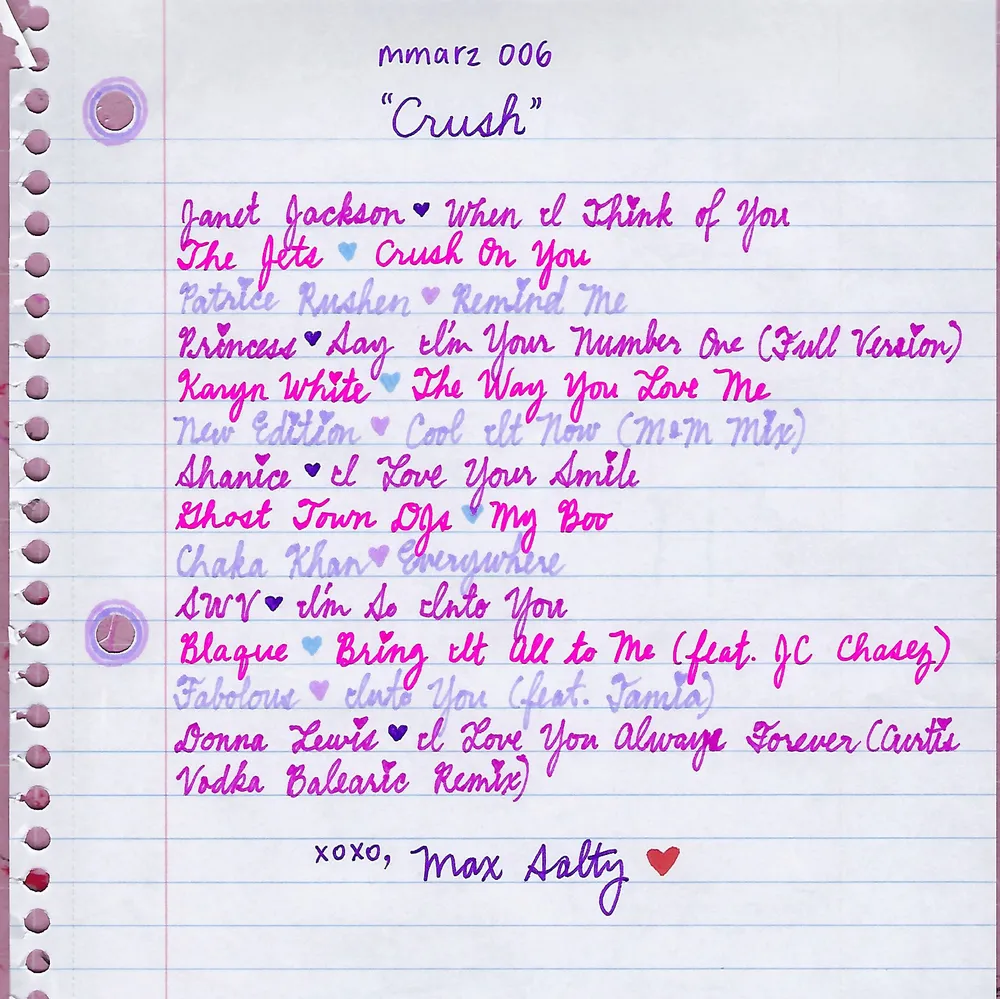 mmarz 006
"Crush"
Janet Jackson ♥ When I Think of You
The Jets ♥ Crush On You
Patrice Rushen ♥ Remind Me
Princess ♥ Say I'm Your Number One (Full Version)
Karyn White ♥ The Way You Love Me
New Edition ♥ Cool It Now (M&M Mix)
Shanice ♥ I Love Your Smile
Ghost Town DJs ♥ My Boo
Chaka Khan ♥ Everywhere
SWV ♥ I'm So Into You
Blaque ♥ Bring It All to Me (feat. JC Chasez)
Fabolous ♥ Into You (feat. Tamia)
Donna Lewis ♥ I Love You Always Forever (Curtis
Vodka Balearic Remix)
xoxo, Max Salty ♥